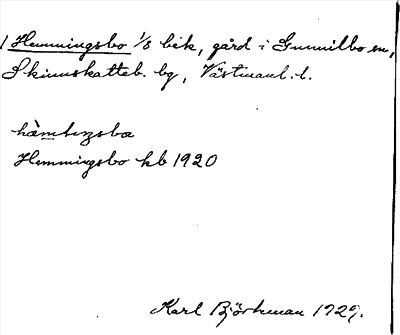 1 Hemmingsbo 1/8 bek, gård i Gunnilbo sn,
Skinnskatteb. bg, Västmanl. l.
Hemmingsbo kb 1920
Karl Björkman 1929.